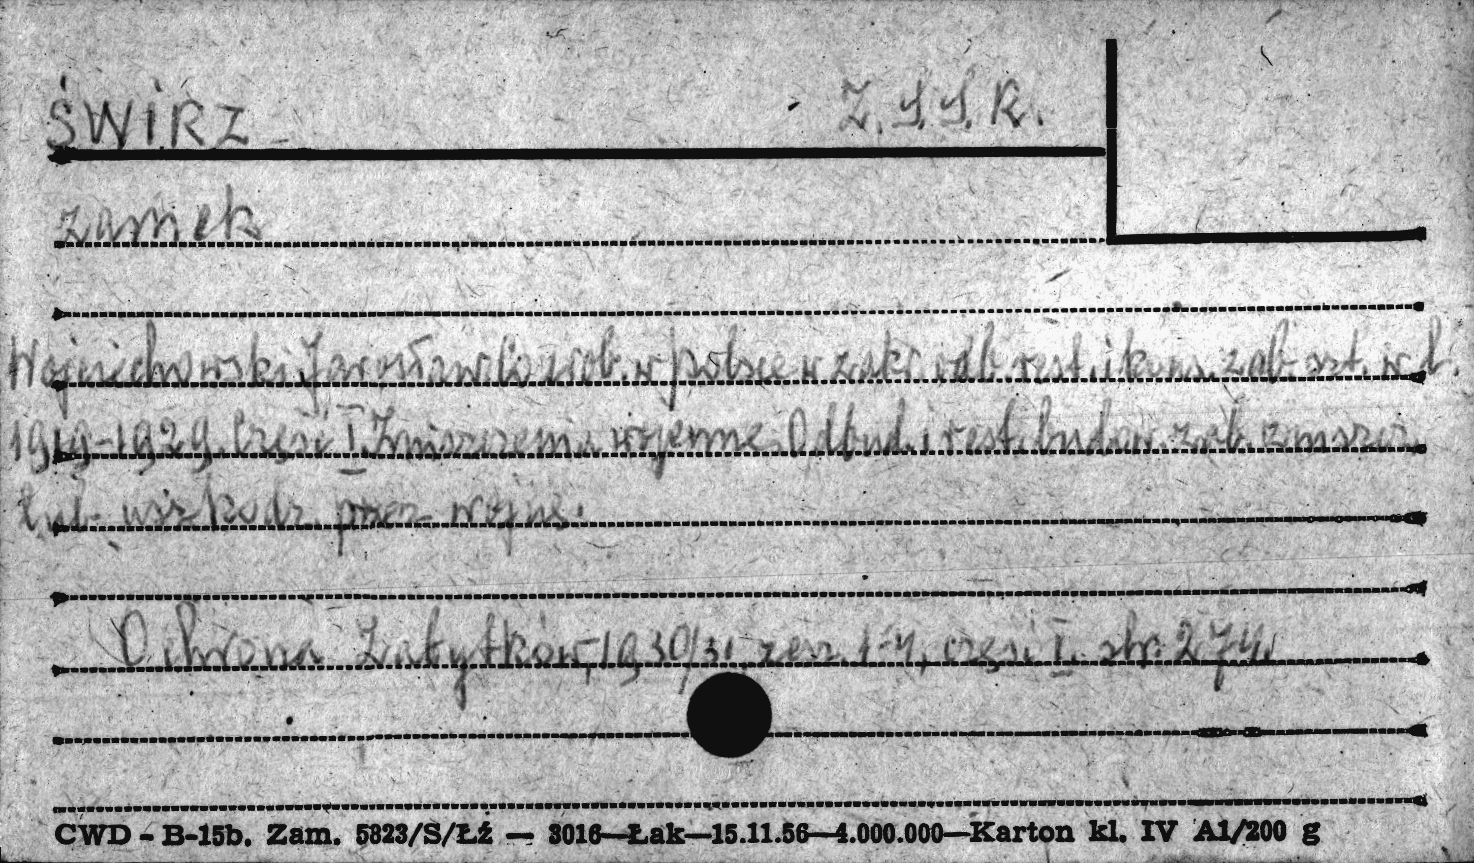 ŚWIRZ Z.S.S.R.
zamek
Wojciechowski Jarosław Co zrob. w Polsce w zakr. odb. rest. i kons. zab. szt. w l.
1919-1929. Część I. Zniszczenia wojenne. Odbud. i rest. budow. zab. zniszcz.
lub uszkodz. przez wojnę.
Ochrona Zabytków, 1930/31, zesz. 1-4, część I. str. 274.
CWD - B-15b. Zam. 5823/S/Łź — 3016—Łak—15.11.56—4.000.000—Karton kl. IV A1/200 g